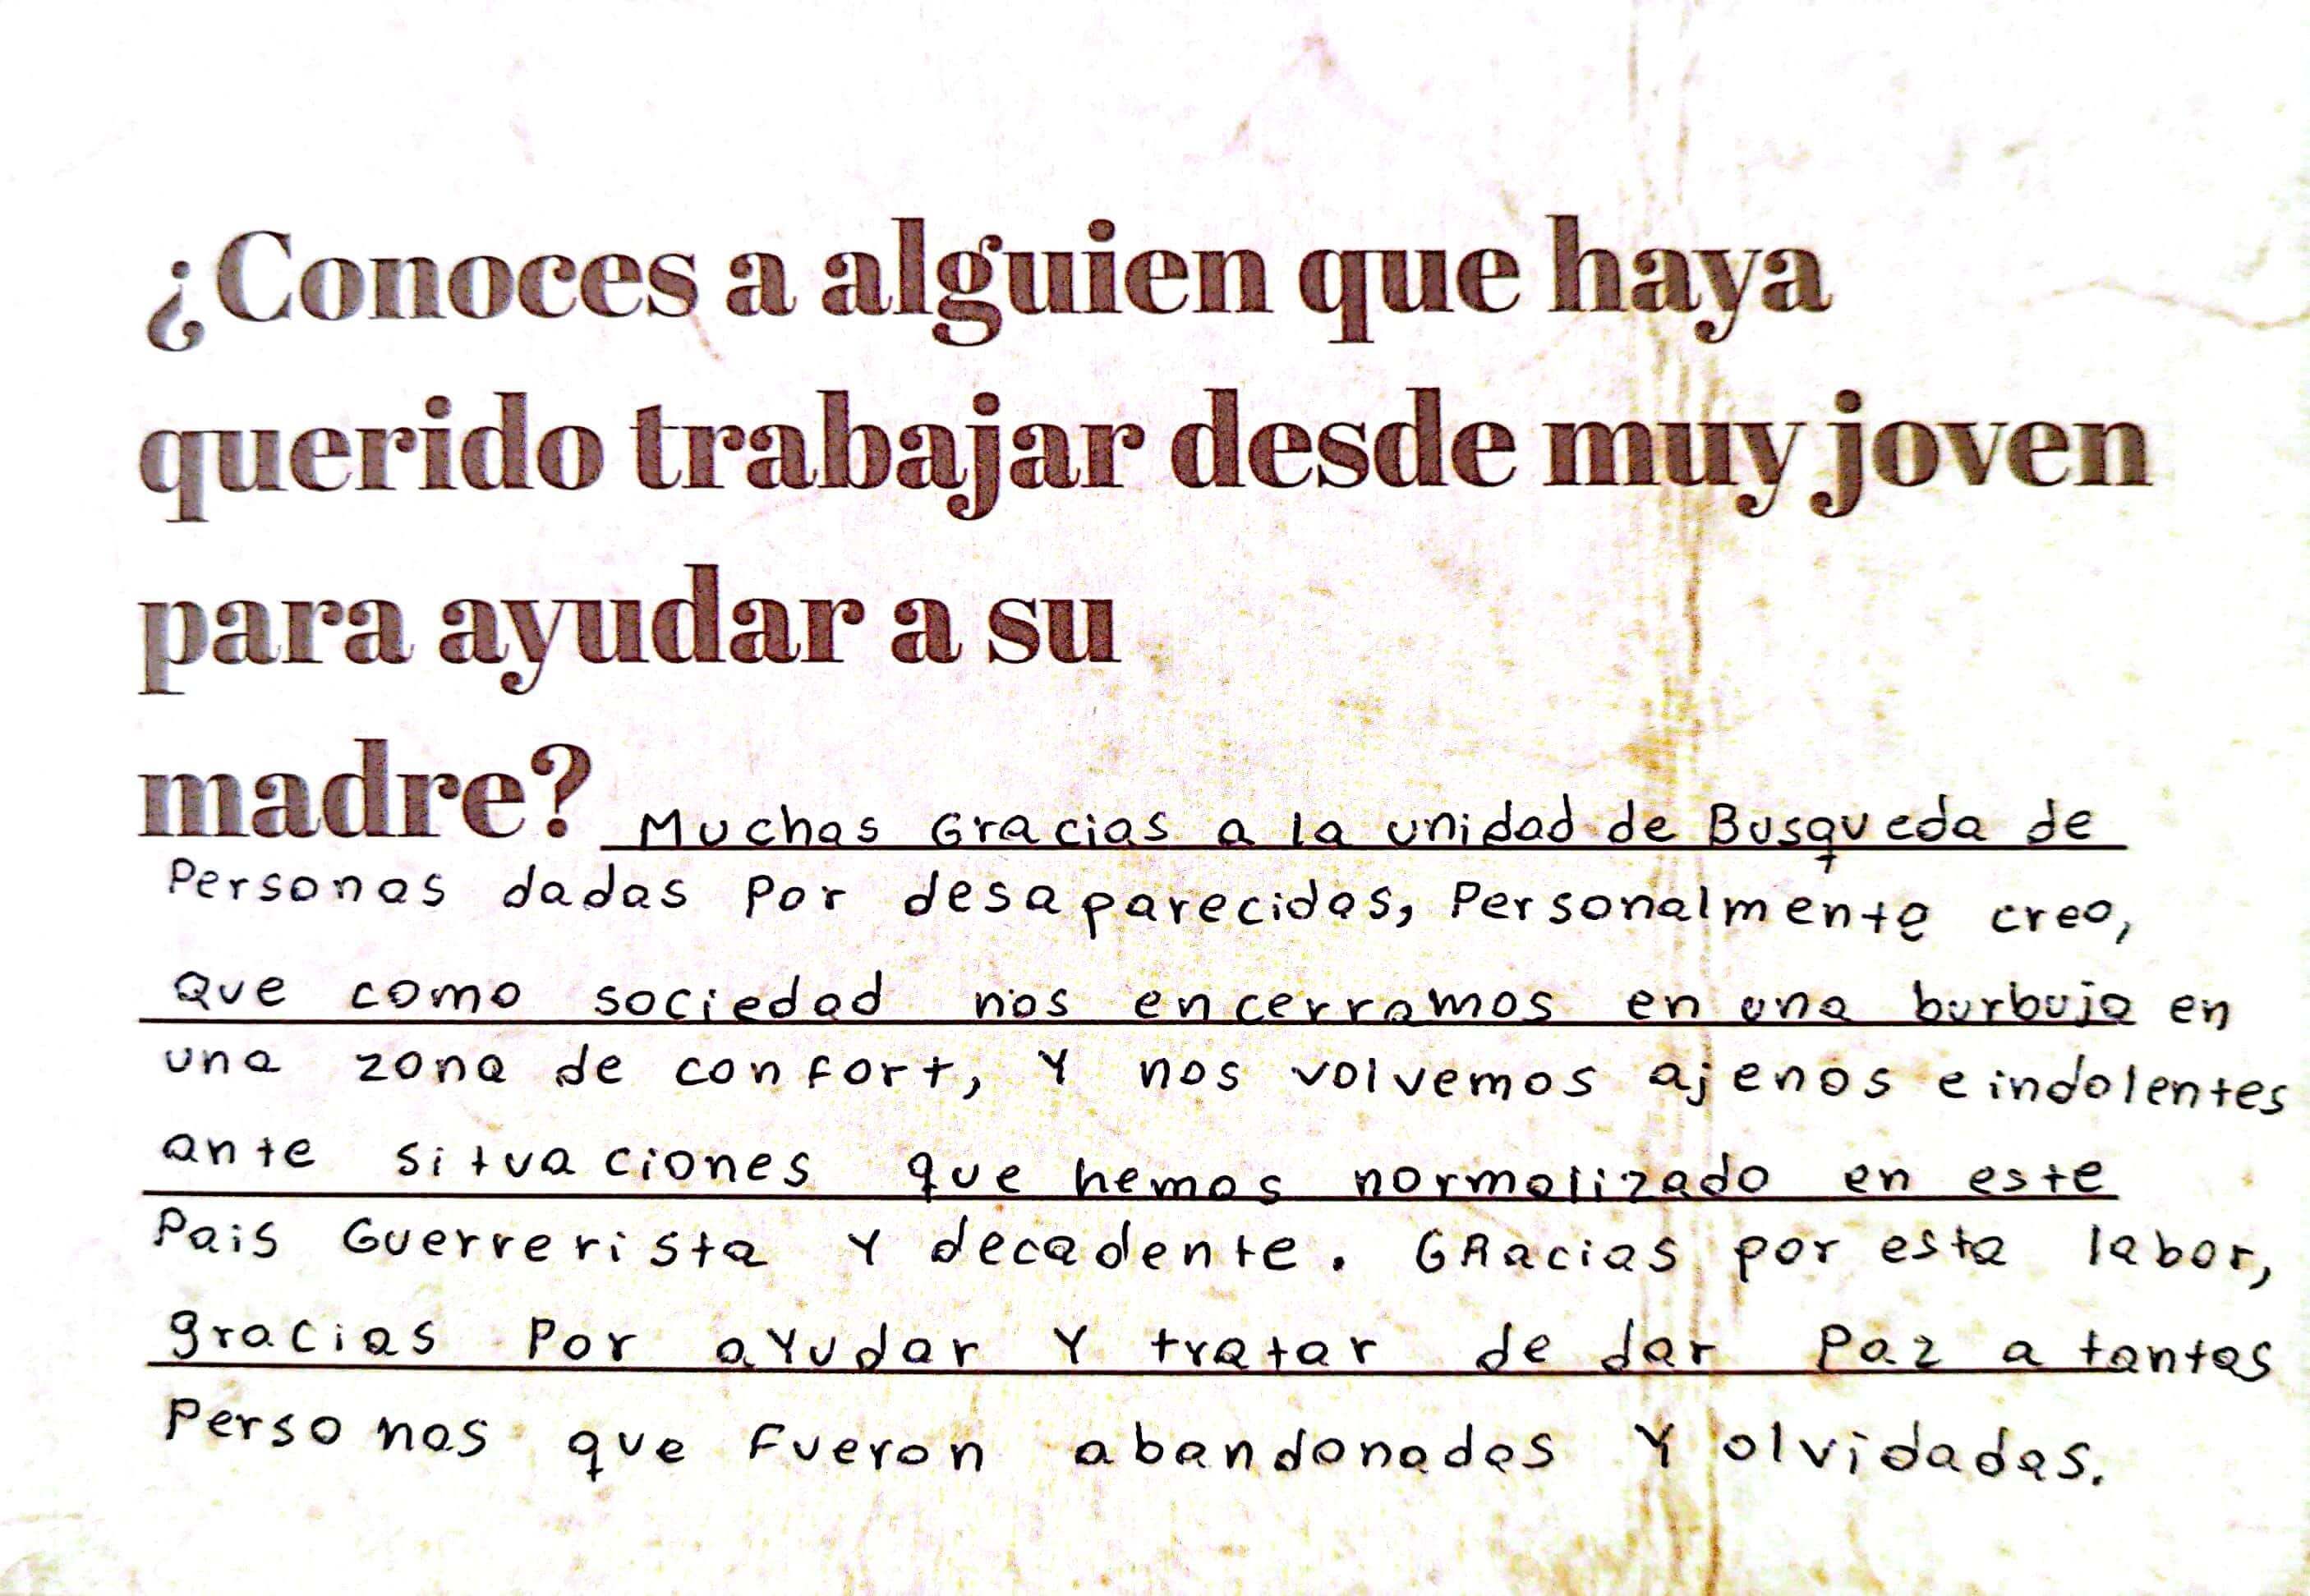 ¿Conoces a alguien que haya
querido trabajar desde muy joven
para ayudar a su
madre? Muchas Gracias a la unidad de Busqueda de
Personas dadas por desaparecidas, Personalmente creo,
Que como sociedad nos encerramos en una burbuja en
una zona de confort, Y nos volvemos ajenos e indolentes
ante situaciones que hemos normalizado en este
Pais Guerrerista Y decadente. GRacias por esta labor,
gracias Por aYudar Y tratar de dar Paz a tantas
Personas que Fueron abandonadas Y olvidadas.